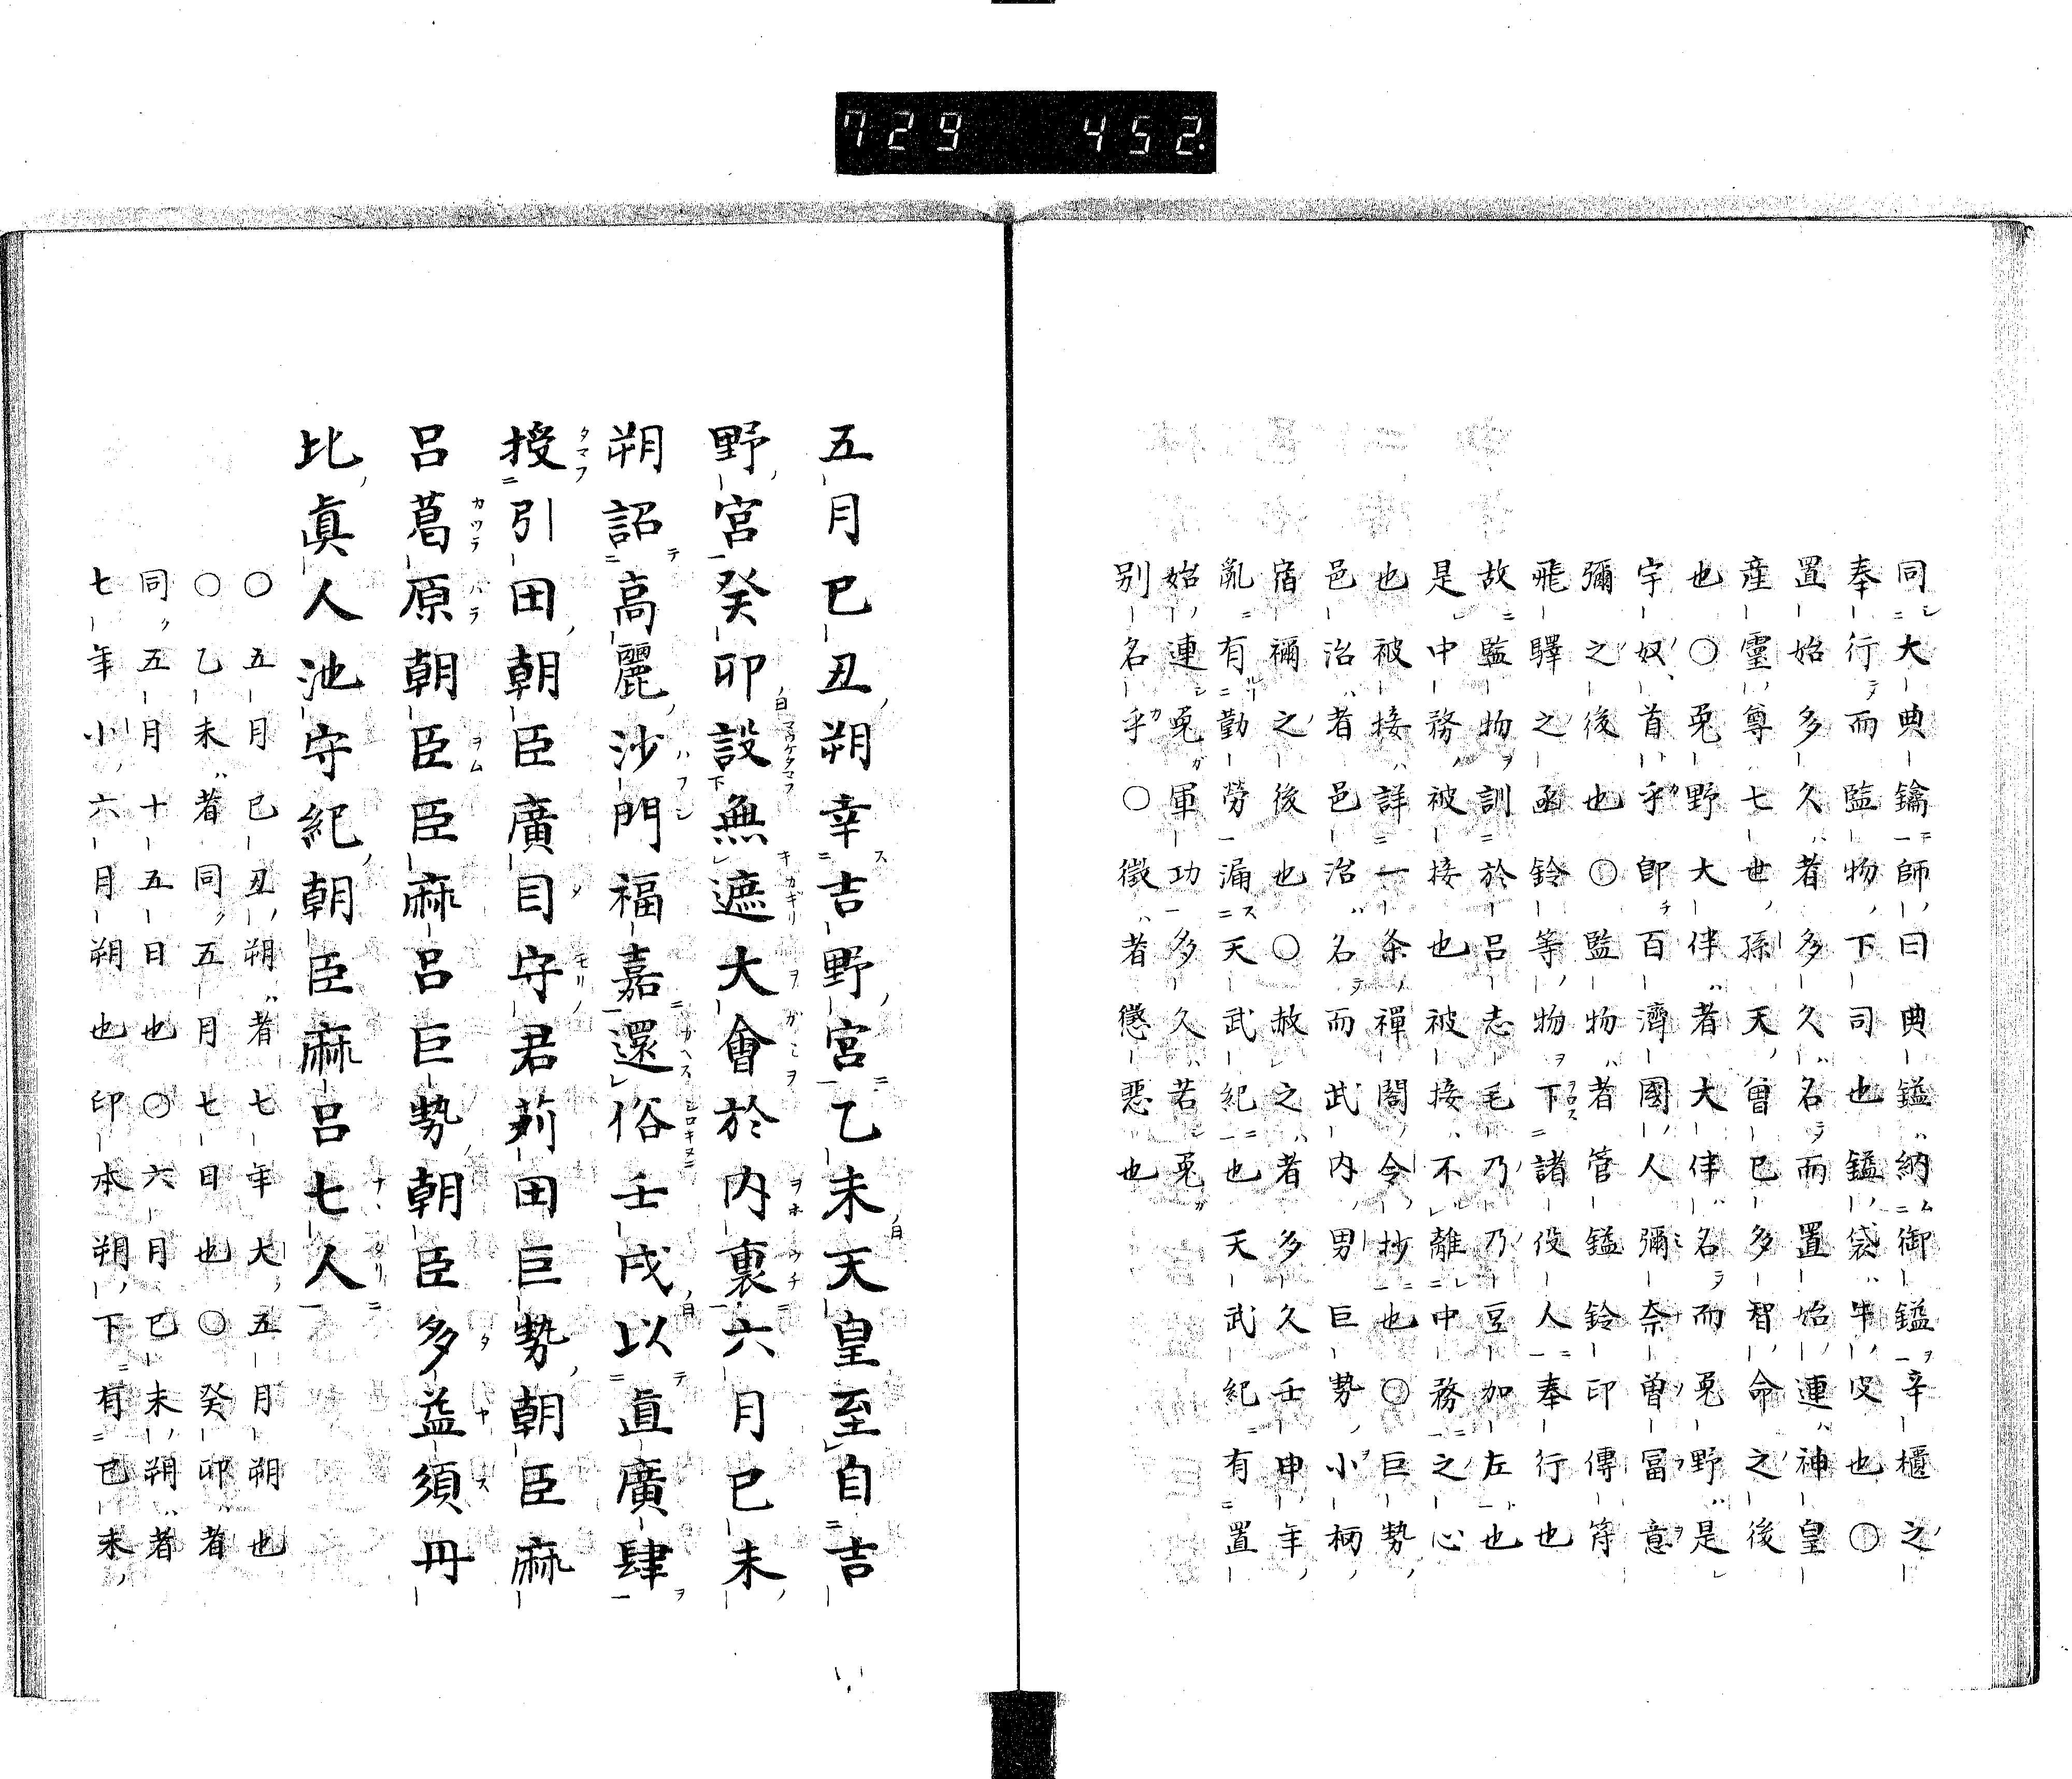 729 452.
同大典鑰師曰典鎰納御鎰辛櫃之
奉行而監物下司也鎰袋牛皮也〇
置始多久者多久名而置始連神皇
産霊尊七世孫天曾巳多智命之後
也〇兎野大伴者大伴名而兎野是
宇奴首乎卽百濟國人彌奈曽冨意
彌之後也〇監物者管鎰鈴印傳符
飛驛之函鈴等物下諸役人奉行也
故監物訓於呂志毛乃乃豆加左也
是中務被接也被接不離中務之心
也被接詳一条禅閤令抄也〇巨勢
邑治者邑治名而武内男巨勢小柄
宿禰之後也〇赦之者多久壬申年
亂有勤勞漏天武紀也天武紀有置
始連兎軍功多久若兎
別名乎〇徴者懲惡也
五月己丑朔幸吉野宮乙未天皇至自吉
野宮癸卯設無遮大會於内裏六月己未
朔詔高麗沙門福嘉還俗壬戌以直廣肆
授引田朝臣廣目守君苅田巨勢朝臣麻
呂葛原朝臣臣麻呂巨勢朝臣多益須丹
比眞人池守紀朝臣麻呂七人
〇五月己丑朔者七年大五月朔也
〇乙未者同五月七日也〇癸卯者
同五月十五日也〇六月己未朔者
七年小六月朔也印本朔下有己未